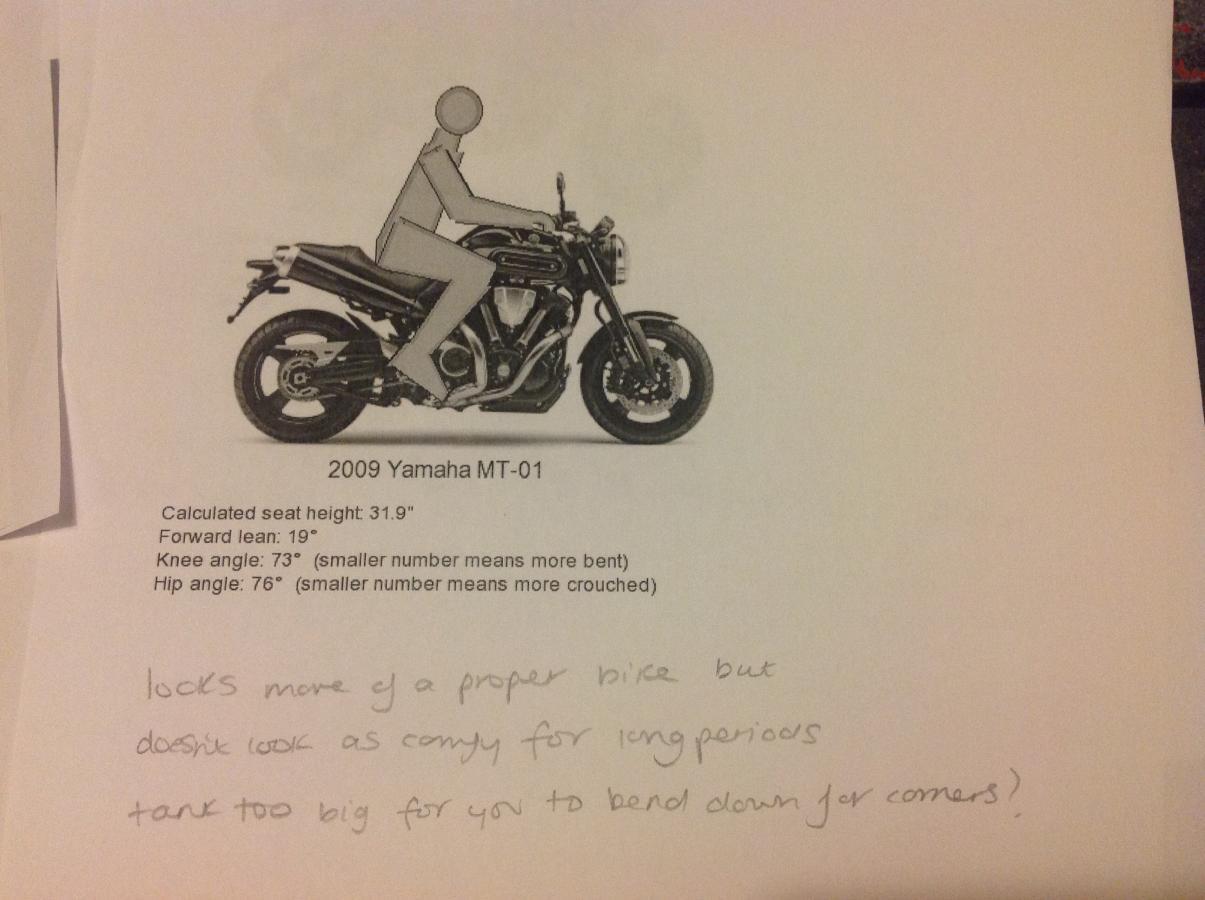 2009 Yamaha MT-01
Calculated seat height: 31.9"
Forward lean: 19°
Knee angle: 73° (smaller number means more bent)
Hip angle: 76° (smaller number means more crouched)
looks more of a proper bike but
doesn't look as comfy for long periods
tank too big for you to bend down for corners?